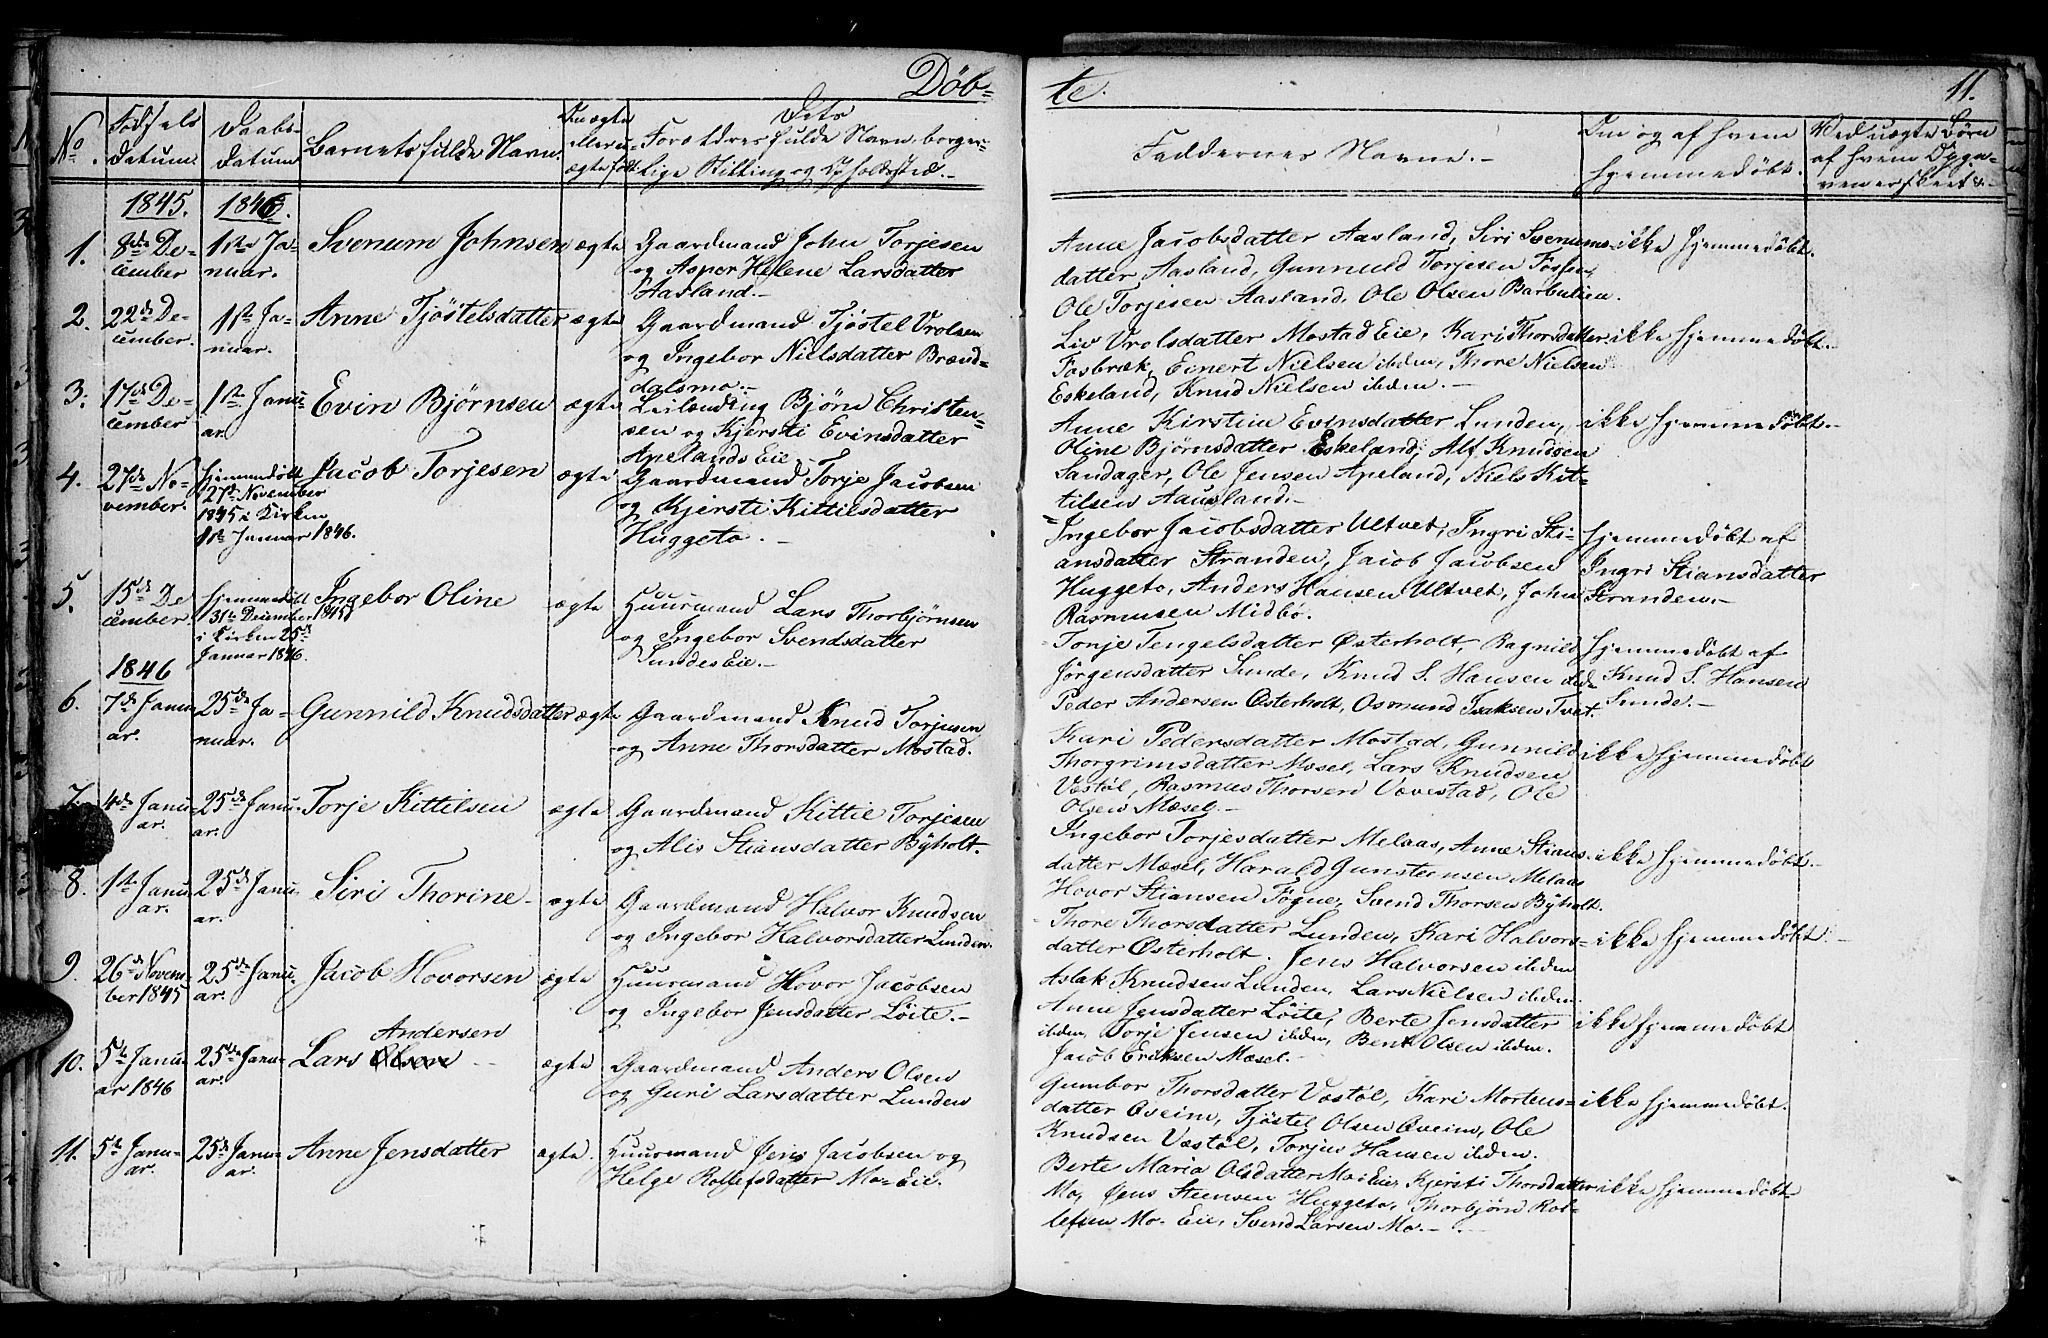 Döb-
te.
11.
No.
Födsels Datum.
Daabs-Datum
Barnets fulde Navn.
Om ægte eller uægte født
Dets Forældres fulde Navn, borgerlige Stilling og Opholdssted.-
Faddernes Navne.-
Om og af hvem hjemmedøbt.
Ved uægte Børn af hvem Opga-
ven er skeet &.-
1845.
1846.
1.
8de De-
cember
1ste Ja-
nuar.
Svenum Johnsen
ægte
Gaardmand John Torjesen
og Asper Helene Larsdatter
Aasland.-
Anne Jacobsdatter Aasland, Siri Svenums-
datter Aasland, Gunnuld Torjesen
Ole Torjesen Aasland, Ole Olsen Barbulien.
ikke hjemmedøbt.
2.
22de De-
cember.
1ste Ja-
nuar.
Anne Tjöstelsdatter
ægte
Gaardmand Tjöstel Vrolsen
og Ingebor Nielsdatter Brænd-
dalsmo.-
Liv Vrolsdatter Mostad Eie, Kari Thorsdatter
Fosbræk, Einert Nielsen ibiden, Thore Nielsen
Eskeland, Knud Nielsen ibiden.-
ikke hjemmedøbt.-
3.
17de De-
cember
1ste Janu-
ar.
Evin Björnsen
ægte
Leilænding Björn Christen-
sen og Kjersti Evinsdatter
Apelands Eie.-
Anne Kirstine Evinsdatter Lunden,
Oline Björnsdatter Eskeland, Alf Knudsen
Sandager, Ole Jensen Apeland, Niels Kit-
tilsen Aausland.-
ikke hjemmedøbt.-
4.
27de No-
vember.
hjemmedöbt
27de November
1845 i Kirken
1ste Januar 1846.
Jacob Torjesen
ægte
Gaardmand Torje Jacobsen
og Kjersti Kittilsdatter
Huggeto.-
Ingebor Jacobsdatter Ultvet, Ingri Sti-
ansdatter Stranden, Jacob Jacobsen
Huggeto, Anders Hansen Ultvet, John
Rasmusen Midbö.
hjemmedøbt af
Ingri Stiansdatter
Stranden.-
5.
15de De
cember
hjemmedöbt
31te December 1845
i Kirken 25de
Januar 1846.
Ingebor Oline
ægte
Huusmand Lars Thorbjörnsen
og Ingebor Svendsdatter
Sundes Eie.-
Tonje Tengelsdatter Østerholt, Ragnild
Jörgensdatter Sunde, Knud S. Hansen ibidn
Peder Andersen Østerholt, Osmund Isaksen Tvet.
hjemmedøbt af
Knud S. Hansen
Sunde.-
1846
6.
7de Janu
ar.
25de Ja-
nuar.
Gunnild Knudsdatter
ægte
Gaardmand Knud Torjusen
og Anne Thorsdatter Mostad.
Kari Pedersdatter Mostad, Gunnild
Thorgrimsdatter Mæsel, Lars Knudsen
Væstöl, Rasmus Thorsen Vævestad, Ole
Olsen Mæsel.-
ikke hjemmedøbt
7.
4de Janu-
ar.
25de Janu-
ar.
Torje Kittilsen
ægte
Gaardmand Kittil Torjesen
og Alis Stiansdatter Byholt.
Ingebor Torjesdatter Melaas, Anne Stians-
datter Mæsel, Harald Gunstensen Melaas
Hovor Stiansen Fogne, Svend Thorsen Byholt.
ikke hjemmedøbt.-
8.
1ste Janu-
ar.
25de Janu-
ar.
Siri Thorine
ægte
Gaardmand Halvor Knudsen
og Ingebor Halvorsdatter Lunden.
Thore Thorsdatter Lunden, Kari Halvors-
datter Østerholt. Jens Halvorsen ibiden
Aslak Knudsen Lunden, Lars Nielsen ibiden.
ikke hjemmedøbt.-
9.
26de Novem-
ber 1845
25de Janu-
ar.
Jacob Hovorsen
ægte
Huusmand Hovor Jacobsen
og Ingebor Jensdatter Löite.-
Anne Jensdatter Löite, Berte Jensdatter
ibiden, Torje Jensen ibiden, Bent Olsen ibiden.
Jacob Eriksen Mæsel.-
ikke hjemmedøbt
10.
5te Janu-
ar 1846
25de Janu-
ar.
Andersen
Lars Olsen
ægte
Gaardmand Anders Olsen
og Guri Larsdatter Lunden
Gumbor Thorsdatter Væstöl, Kari Mortens-
datter Oveim, Tjöstel Olsen Oveim, Ole
Knudsen Væstöl, Torjus Hansen ibiden.
ikke hjemmedøbt.
11.
5te Janu-
ar.
25de Janu-
ar.
Anne Jensdatter
ægte.
Huusmand Jens Jacobsen og
Helge Rollefsdatter Mo-Eie.
Berte Maria Olsdatter Moi Eie, Kjersti Thorsdatter
Mo, Jens Steensen Huggeto, Thorbjörn Rol-
lefsen Mo-Eie, Svend Larsen Mo.-
ikke hjemmedøbt-